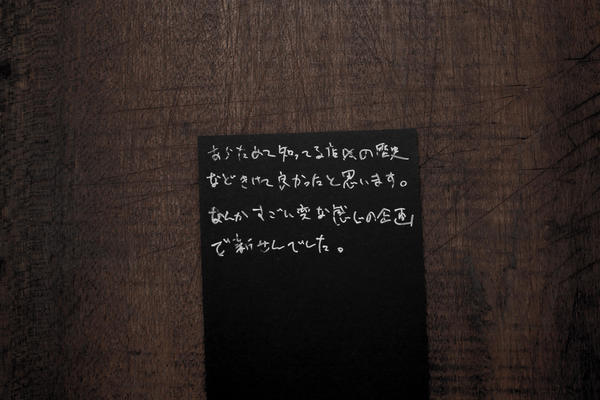 あらためて知ってる店以の歴史
などきけて良かったと思います。
なんかすごい変な感じの企画
で新せんでした。